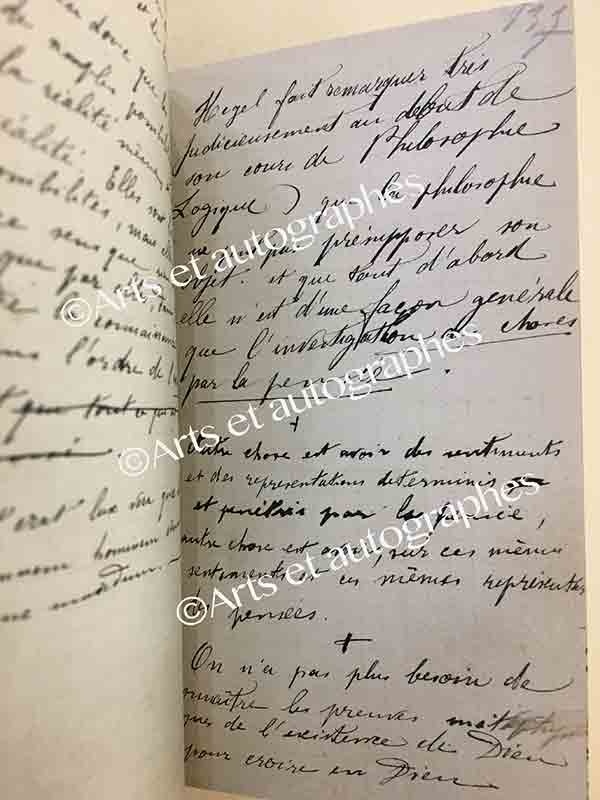 en donc que
de simples possibil
la réalité même
réalité. Elles
possibilités, mais
ce sens que
que par
connaissance
l'ordre de l
que tout ce qui
137
Hegel fait remarquer très
judicieusement au début de
son cours de Philosophie
Logique) que la philosophie
ne peut pas présupposer son
objet. et que tout d'abord
elle n'est d'une façon générale
que l'investigation des choses
par la pensée.
+
Autre chose est avoir des sentiments
et des représentations déterminés
et pénétrés par la pensée,
autre chose est avoir, sur ces mêmes
sentiments et ces mêmes représentat
des pensées.
+
On n'a pas plus besoin de
connaître les preuves métaphy
ques de l'existence de Dieu
pour croire en Dieu
©Arts et autographes
©Arts et autographes
©Arts et autographes